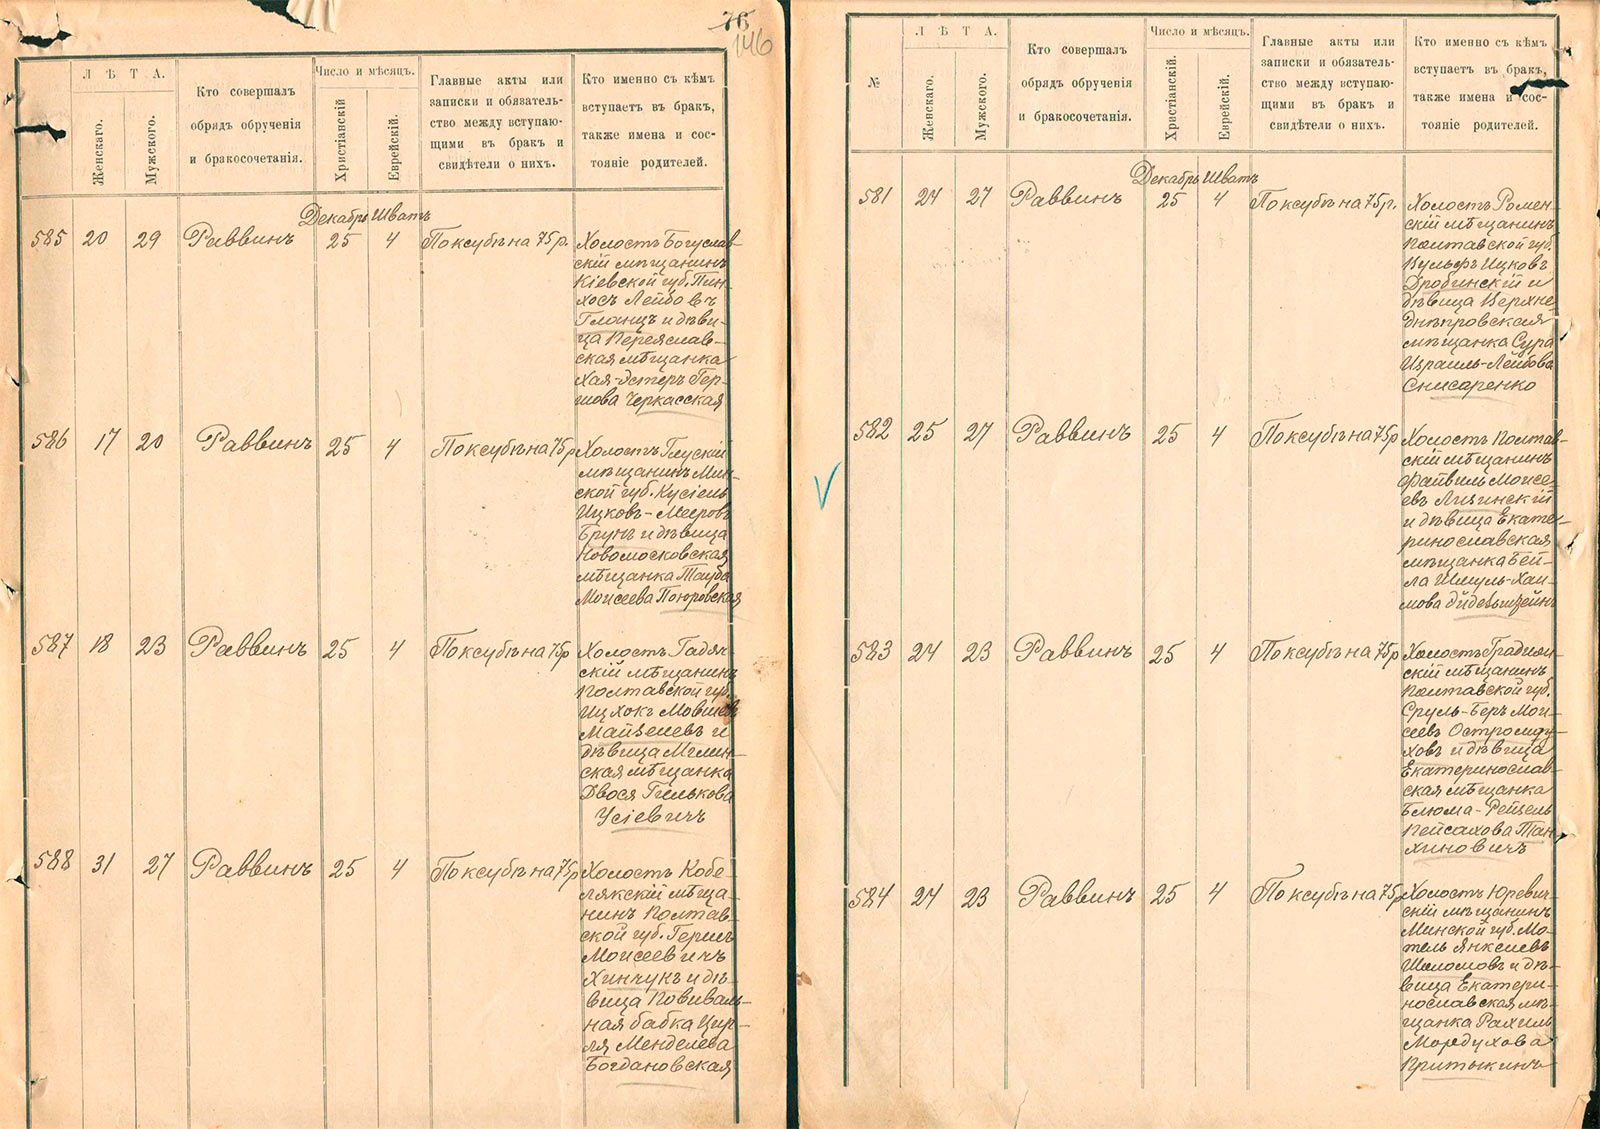 76
146
Л Ѣ Т А.
Женскаго.
Мужского.
Кто совершалъ
обрядъ обрученія
и бракосочетанія.
Число и мѣсяцъ.
Христіанскій
Еврейскій.
Главные акты или
записки и обязатель-
ство между вступаю-
щими въ бракъ и
свидѣтели о нихъ.
Кто именно съ кѣмъ
вступаетъ въ бракъ,
также имена и сос-
тояніе родителей.
Декабрь Шватъ
585 20 29 Раввинъ 25 4 По ксубѣ на 75 р.
Холостъ Богуслав-
скій мѣщанинъ
Кіевской губ. Пин-
хосъ Лейбовъ
Гланцъ и дѣви-
ца Переяслав-
ская мѣщанка
Хая-Эстеръ Гер-
шова Черкасская
586 17 20 Раввинъ 25 4 По ксубѣ на 75 р
Холостъ Глускій
мѣщанинъ Мин-
ской губ. Кусіель
Ицковъ-Мееровъ
Брукъ и дѣвица
Новомосковская
мѣщанка Тауба
Моисеева Поюровская
587 18 23 Раввинъ 25 4 По ксубѣ на 75 р
Холостъ Гадяч-
скій мѣщанинъ
Полтавской губ.
Ицхокъ Мовшевъ
Майзелевъ и
дѣвица Мглин-
ская мѣщанка
Двося Гилькова
Усіевичъ
588 31 27 Раввинъ 25 4 По ксубѣ на 75 р
Холостъ Кобе-
лякскій мѣща-
нинъ Полтав-
ской губ. Гершъ
Моисеевичъ
Хинчукъ и дѣ-
вица Повиваль-
ная бабка Цир-
ля Менделева
Богдановская
№
Л Ѣ Т А.
Женскаго.
Мужского.
Кто совершалъ
обрядъ обрученія
и бракосочетанія.
Число и мѣсяцъ.
Христіанскій.
Еврейскій.
Главные акты или
записки и обязатель-
ство между вступаю-
щими въ бракъ и
свидѣтели о нихъ.
Кто именно съ кѣмъ
вступаетъ въ бракъ,
также имена и сос-
тояніе родителей.
Декабрь Шватъ
581 24 27 Раввинъ 25 4 По ксубѣ на 75 р.
Холостъ Ромен-
скій мѣщанинъ
Полтавской губ.
Вульфъ Ицковъ
Дробинскій и
дѣвица Верхне-
днѣпровская
мѣщанка Сура
Израиль-Лейбова
Снисаренко
582 25 27 Раввинъ 25 4 По ксубѣ на 75 р
Холостъ Полтав-
скій мѣщанинъ
Файвиль Моисе-
евъ
и дѣвица Екате-
ринославская
мѣщанка Бей-
ла Шмуль-Хаи-
мова
583 24 23 Раввинъ 25 4 По ксубѣ на 75 р
Холостъ Градиж-
скій мѣщанинъ
Полтавской губ.
Сруль-Беръ Мои-
сеевъ Остромоду-
ховъ и дѣвица
Екатеринослав-
ская мѣщанка
Блюма-Рейцель
Пейсахова Тан-
хиновичъ
584 24 23 Раввинъ 25 4 По ксубѣ на 75 р
Холостъ Юревич-
скій мѣщанинъ
Минской губ. Мо-
тель Янкелевъ
Шоломовъ и дѣ-
вица Екатери-
нославская мѣ-
щанка Рахиль
Мордухова
Притыкинъ